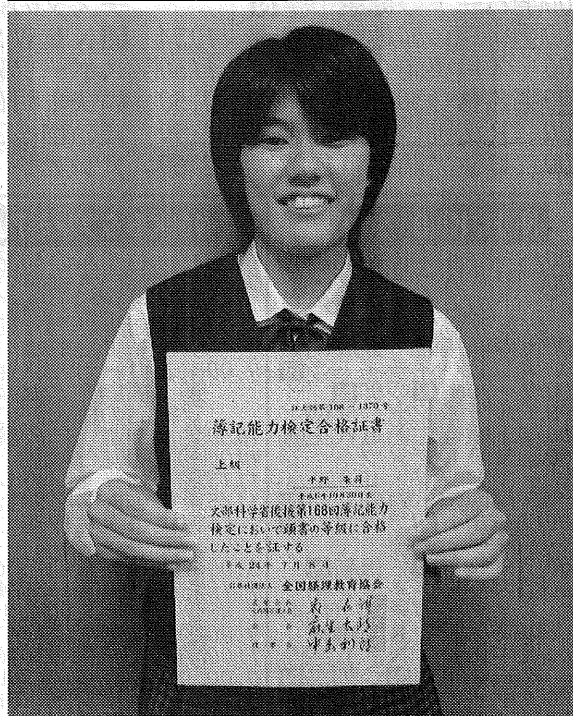 薄記能力検定合格証書
上級
平野
文部科学省後援第168回簿記能力
検定において頭書の等級に合格
したことを証する
平成24年 7月 8日
公益社団法人 全国経理教育協会
麻生太郎